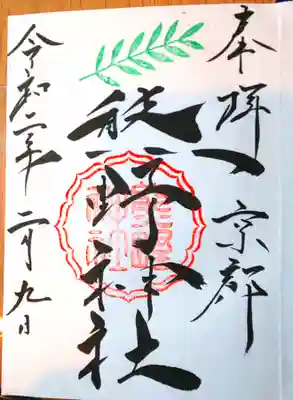 奉拝 京都
熊野神社
令和二年二月九日